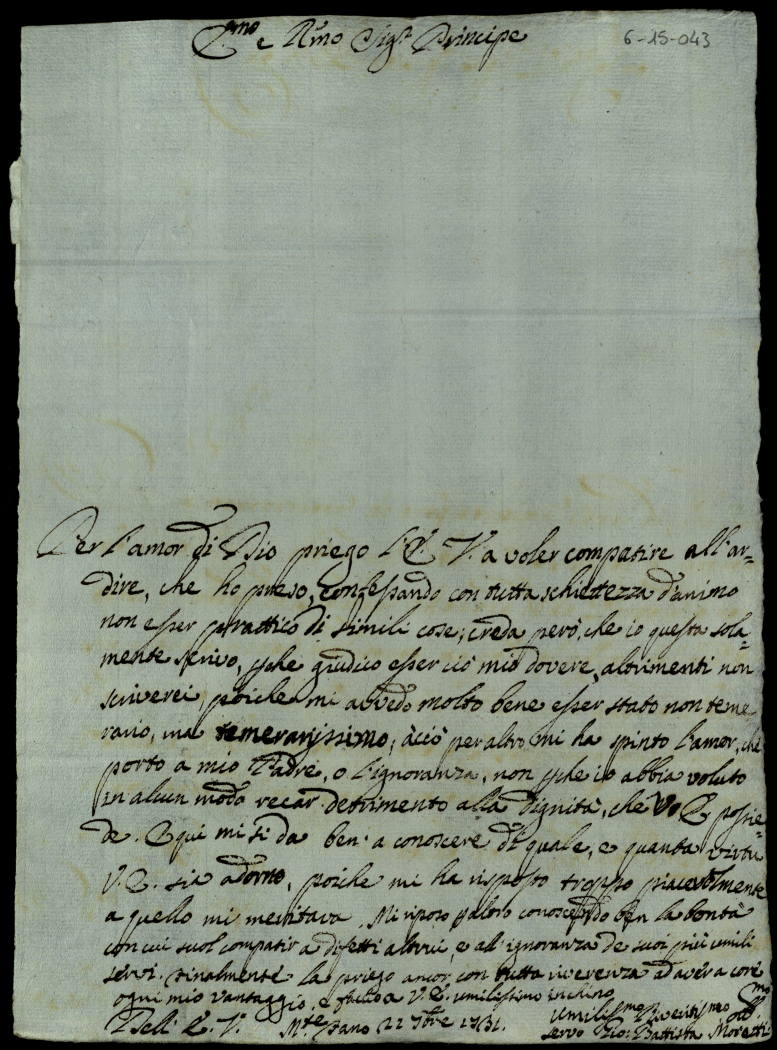 E.mo e R.mo Sig.r Principe
6-15-043
Per l'amor di Dio priego l'E. V. a voler compatire all'ar=
dire, che ho preso, confessando con tutta schiettezza d'animo
non esser prattico di simili cose; creda però, che io questa sola=
mente scrivo, pche giudico esser ciò mio dovere, altrimenti non
scriverei, poiche mi avvedo molto bene esser stato non teme
rario, ma temerarissimo; àciò per altro mi ha spinto l'amor, che
porto a mio Padre, o l'ignoranza, non pche io abbia voluto
in alcun modo recar detrimento alla Dignità, che V. E. possie=
de. E qui mi si da ben' a conoscere di quale, e quanta virtù
V. E. sia adorno, poiche mi ha risposto troppo piacevolmente
a quello mi meritava. Mi riposo conoscendo ben la bontà
con cui suol compatir a difetti altrui, e all'ignoranza de suoi più umili
servi. Finalmente la priego ancor con tutta riverenza ad aver a core
ogni mio vantaggio, e faccio a V. E. umilissimo inchino
Dell' E. V. M.te Fano 22 7bre 1731.
Umiliss.mo Divotissmo Obb.mo
servo Gio: Battista Moretti